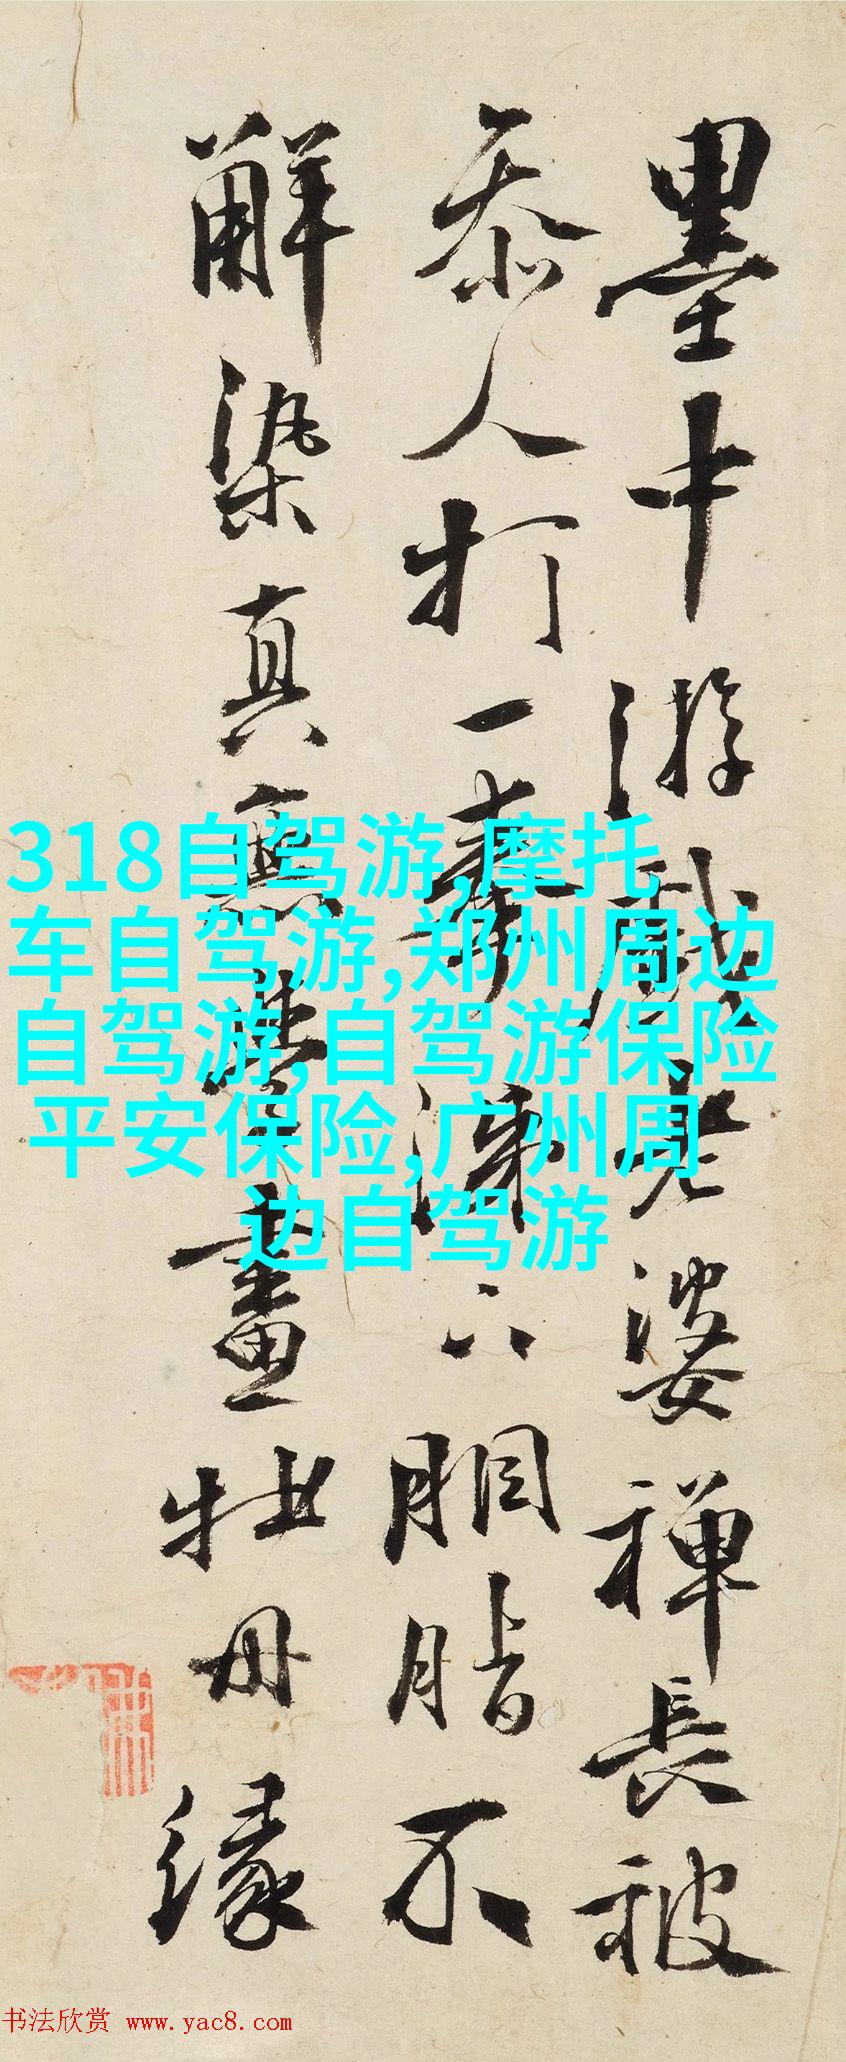 墨中游戲老婆禪長被
叅人打一拳涕下胭脂不
解染真無學畫牡丹緣
318自驾游,摩托
车自驾游,郑州周边
自驾游,自驾游保险
平安保险,广州周
边自驾游
书法欣赏 www.yac8.com